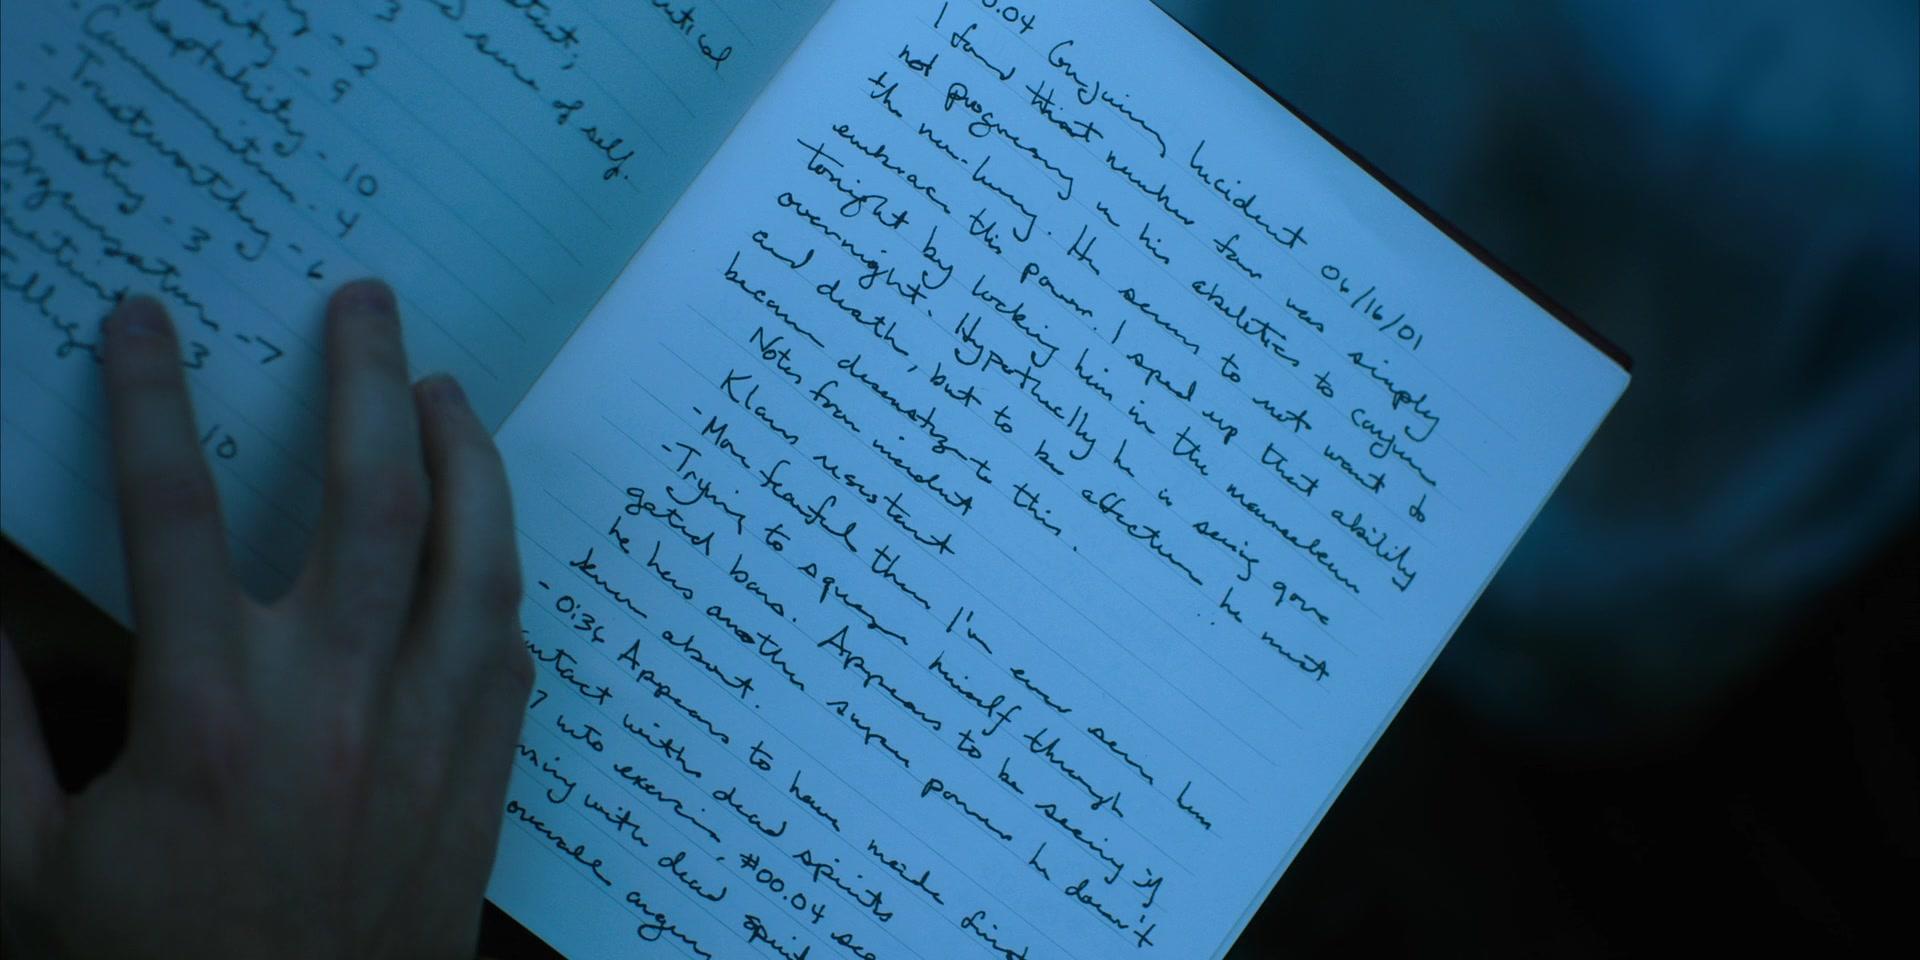 - 2
- 9
Adaptability - 10
Communication - 4
- Trustworthy - 6
- Trusting - 3
Organization - 7
3
10
3
sense of self.
0.04 Conjuring Incident 06/16/01
I found that number four was simply
not progressing in his abilities to conjure
the non-living. He seems to not want to
embrace this power. I sped up that ability
tonight by locking him in the mausoleum
overnight. Hypothetically he is seeing gore
and death, but to be affective he must
become desensitize to this.
Notes from incident
Klaus resistant
- More fearful then I'm ever seen him
- Trying to squeeze himself through
gated bars. Appears to be seeing if
he has another super power he doesn't
know about.
- 0:36 Appears to have made first
contact with dead spirits
7 into exercise, #00.04 see
with dead spirit
overcale anger